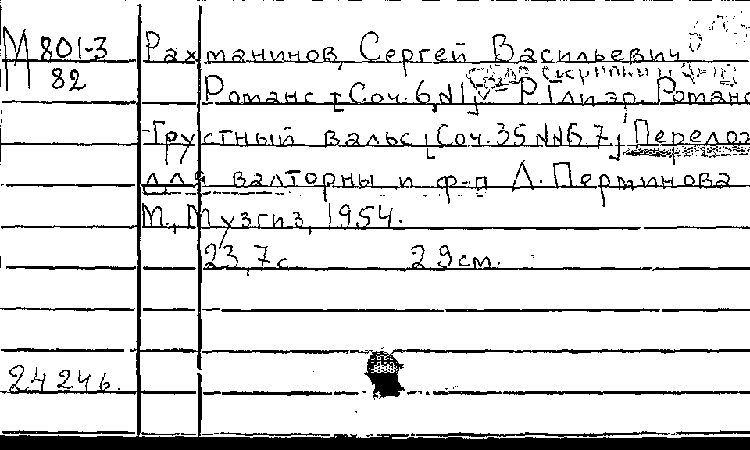 М 801-3
82
Рахманинов, Сергей Васильевич
для скрипки и ф-п
Романс [Соч. 6, №1] Р. Глиэр. Романс
Грустный вальс [Соч. 35 №№6 7.] Перелож
для валторны и ф-п Л. Перминова
М., Музгиз, 1954.
23, 7 с 29 см.
24246.